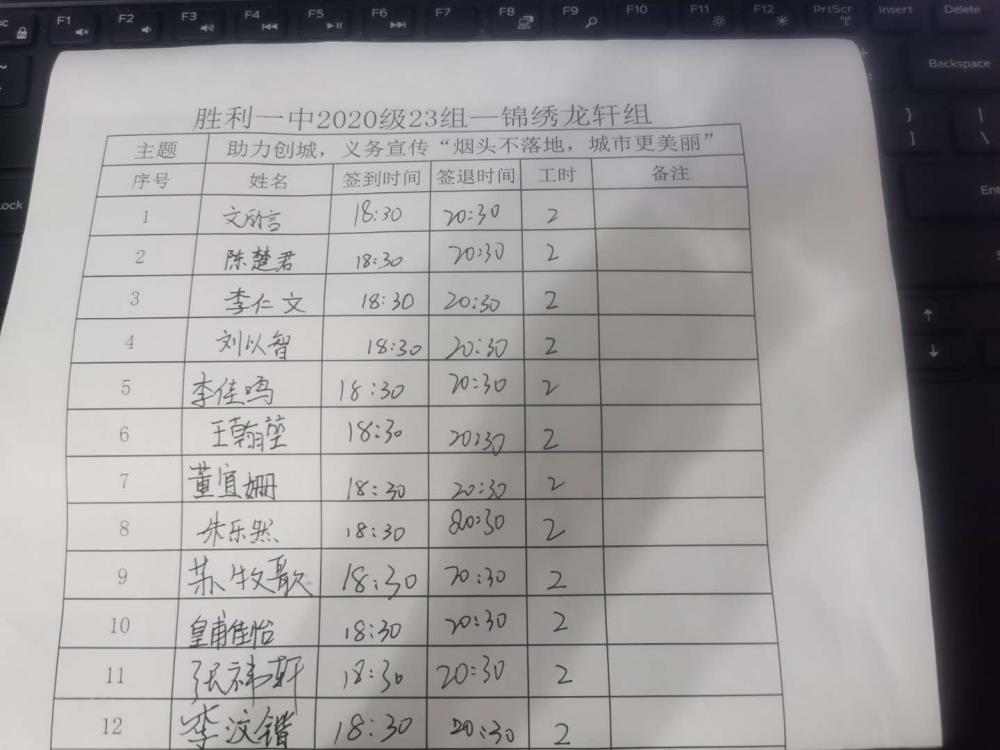 F1 F2 F3 F4 F5 F6 F7 F8 F9 F10 F11 F12 PrtScr Insert Delete
Backspace
胜利一中2020级23组—锦绣龙轩组
主题 助力创城，义务宣传“烟头不落地，城市更美丽”
序号 姓名 签到时间 签退时间 工时 备注
1 文欣言 18:30 20:30 2
2 陈楚君 18:30 20:30 2
3 李仁文 18:30 20:30 2
4 刘以智 18:30 20:30 2
5 李佳鸣 18:30 20:30 2
6 王翰堃 18:30 20:30 2
7 董宜姗 18:30 20:30 2
8 朱乐然 18:30 20:30 2
9 苏牧歌 18:30 20:30 2
10 皇甫佳怡 18:30 20:30 2
11 张祎轩 18:30 20:30 2
12 李汶锴 18:30 20:30 2